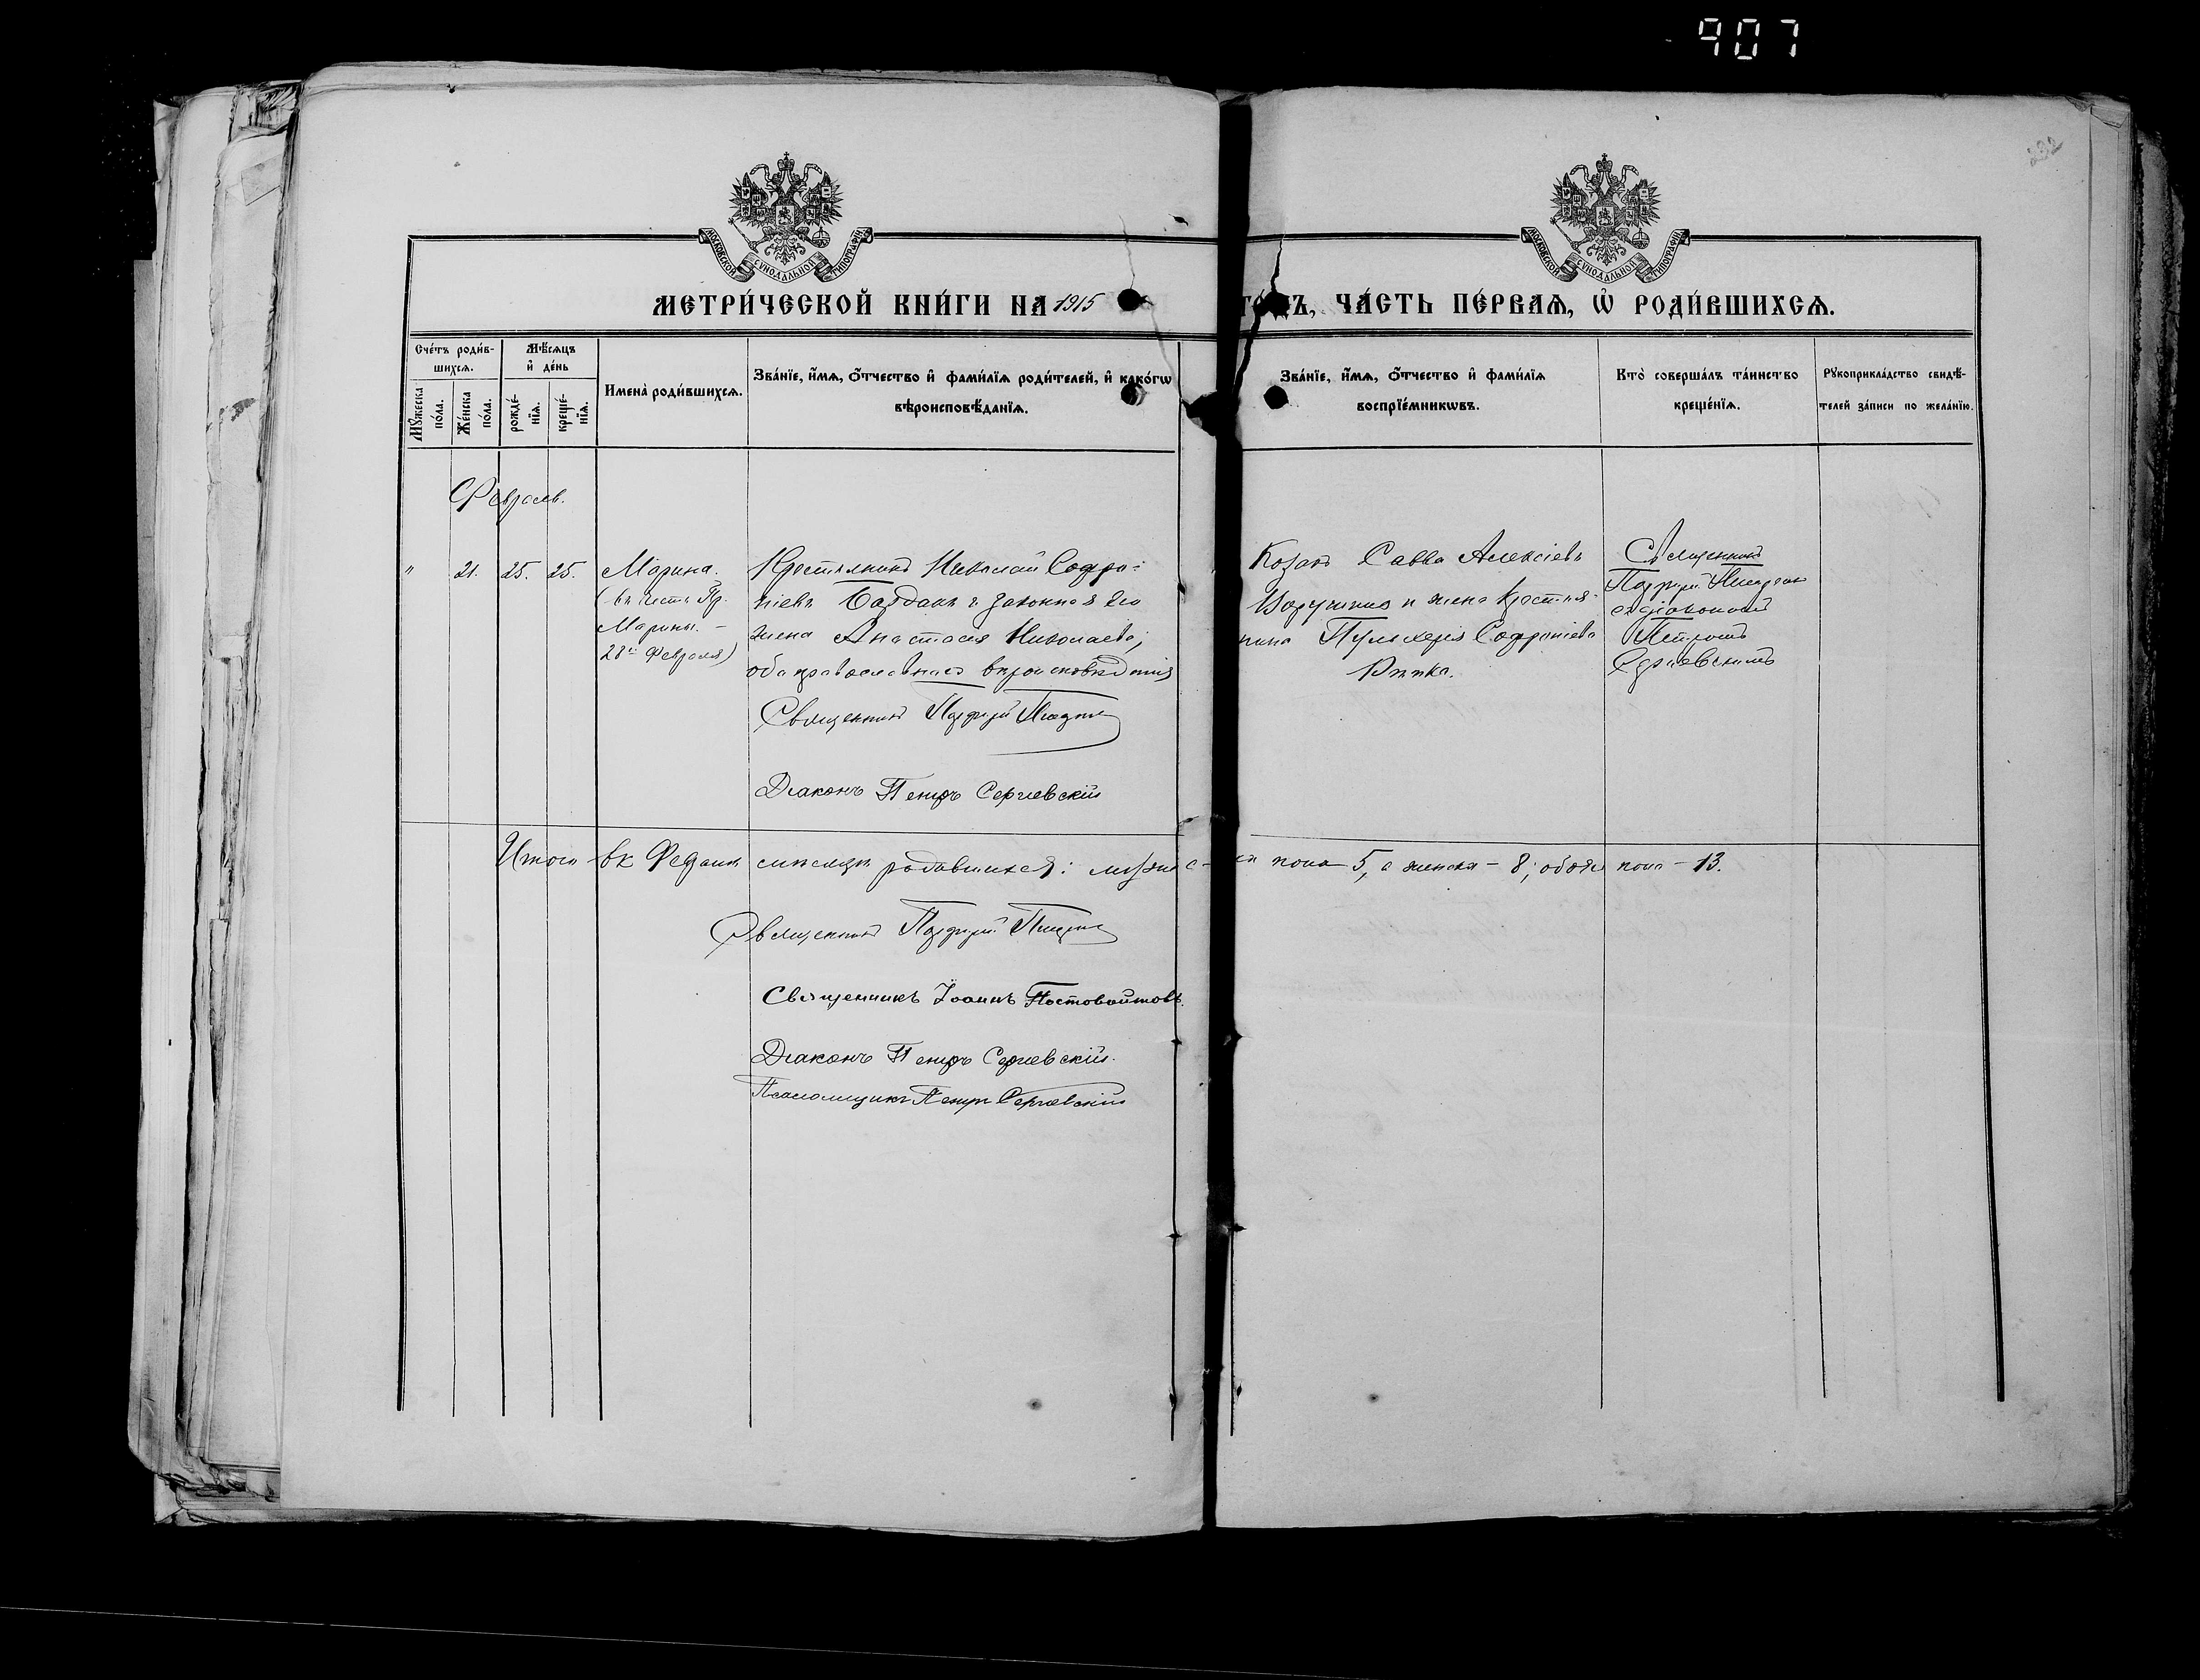 907
232
МОСКОВСКОЙ СѴНОДАЛЬНОЙ ТИПОГРАФІИ
МОСКОВСКОЙ СѴНОДАЛЬНОЙ ТИПОГРАФІИ
МЕТРИ́ЧЕСКОЙ КНИ́ГИ НА 1915
ЧА́СТЬ ПЕ́РВАѦ, Ѡ҆ РОДИ́ВШИХСѦ.
Сче́тъ роди́в-
шихсѧ.
Мꙋ́жеска по́ла.
Же́нска по́ла.
Мѣ́сѧцъ
и҆ де́нь
рожде́-
нїѧ.
креще́-
нїѧ.
Имена̀ роди́вшихсѧ.
Зва́нїе, и҆́мѧ, о҆́тчество и҆ фами́лїѧ роди́телей, и҆ како́гѡ
вѣроисповѣ́данїѧ.
Зва́нїе, и҆́мѧ, о҆́тчество и҆ фами́лїѧ
воспрїе́мникѡвъ.
Кто̀ соверша́лъ та́инство
креще́нїѧ.
Рꙋкоприкла́дство свидѣ́-
телей за́писи по жела́нїю.
Февраль.
" 21. 25. 25.
Марина.
(въ честь Пр.
Марины. –
28го Февраля)
Крестьянинъ Николай Софро-
ніевъ и законная его
жена Анастасія Николаева,
оба православнаго вѣроисповѣданія
Священникъ
Діаконъ Петръ Сергіевскій
Козакъ Савва Алексіевъ
и жена крестья-
нина Пульхерія Софроніева
Священникъ
съ діакономъ
Петромъ
Сергіевскимъ
Итого въ мѣсяцѣ родившихся: мужеска пола 5, а женска – 8; обоего пола – 13.
Священникъ
Священникъ Іоаннъ Постовойтовъ.
Діаконъ Петръ Сергіевскій.
Псаломщикъ Петръ Сергіевскій